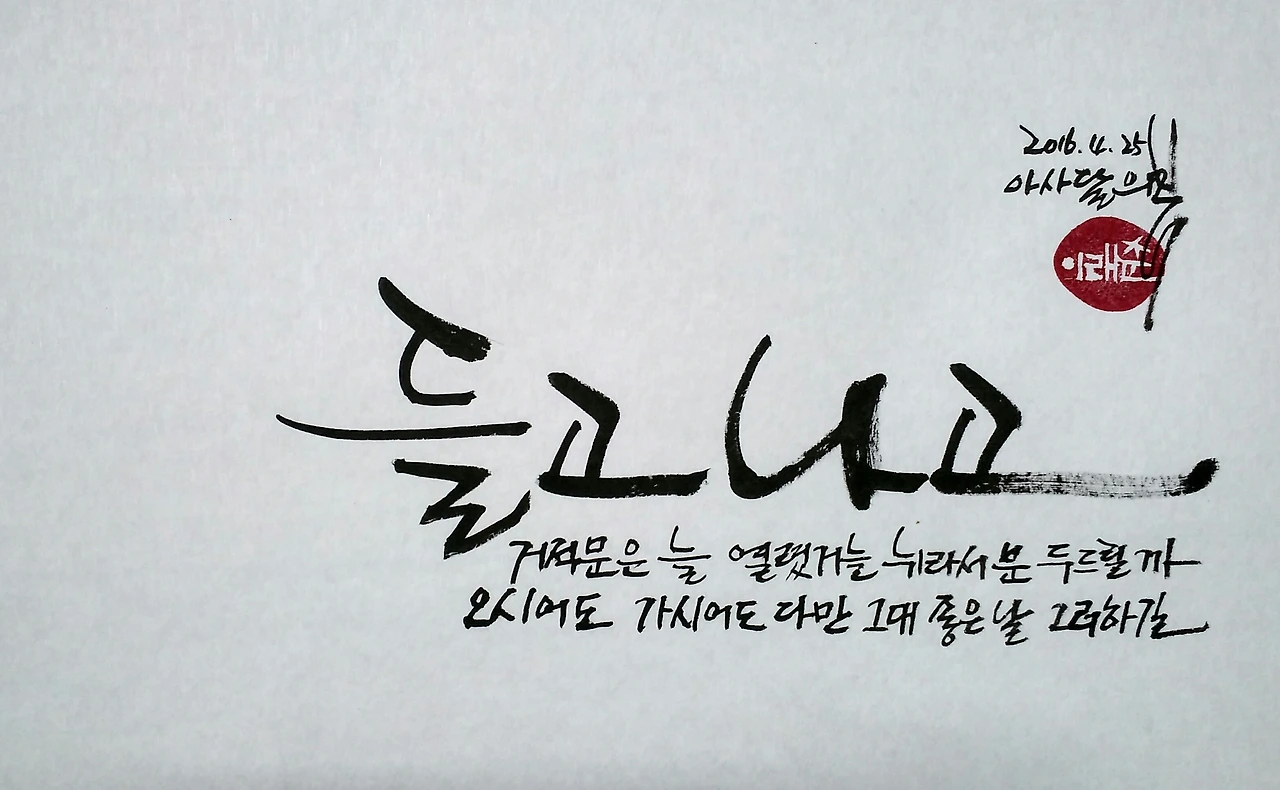 2016. 4. 25
아사달의
들고나고
거적문은 늘 열렸거늘 뉘라서 문 두드릴까
오시어도 가시어도 다만 그대 좋은 날 그러하길